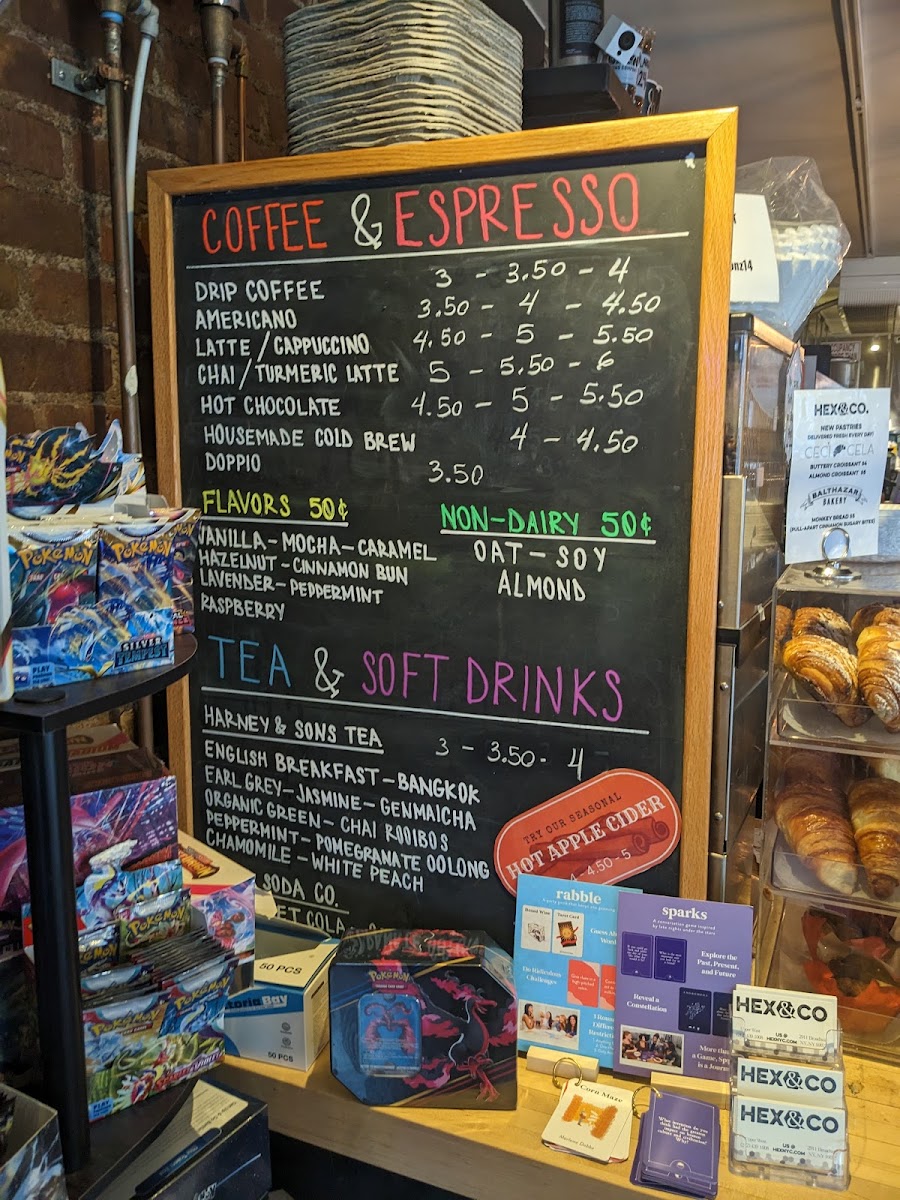 COFFEE & ESPRESSO
DRIP COFFEE 3 - 3.50 - 4
AMERICANO 3.50 - 4 - 4.50
LATTE / CAPPUCCINO 4.50 - 5 - 5.50
CHAI / TURMERIC LATTE 5 - 5.50 - 6
HOT CHOCOLATE 4.50 - 5 - 5.50
HOUSEMADE COLD BREW 4 - 4.50
DOPPIO 3.50
FLAVORS 50¢
VANILLA - MOCHA - CARAMEL
HAZELNUT - CINNAMON BUN
LAVENDER - PEPPERMINT
RASPBERRY
NON-DAIRY 50¢
OAT - SOY
ALMOND
TEA & SOFT DRINKS
HARNEY & SONS TEA 3 - 3.50 - 4
ENGLISH BREAKFAST - BANGKOK
EARL GREY - JASMINE - GENMAICHA
ORGANIC GREEN - CHAI ROOIBOS
PEPPERMINT - POMEGRANATE OOLONG
CHAMOMILE - WHITE PEACH
SODA CO.
COLA
TRY OUR SEASONAL
HOT APPLE CIDER
4 - 4.50 - 5
HEX&CO.
NEW PASTRIES
DELIVERED FRESH EVERY DAY!
CECI CELA
BUTTERY CROISSANT $4
ALMOND CROISSANT $5
BALTHAZAR
BAKERY
MONKEY BREAD $5
(PULL-APART CINNAMON SUGARY BITES)
Pokémon
Pokémon
SILVER
TEMPEST
Pokémon
Pokémon
Pokémon
50 PCS
50 PCS
Pokémon
rabble
sparks
A conversation game inspired
by late nights under the stars
Explore the
Past, Present,
and Future
Reveal a
Constellation
Corn Maze
HEX&CO
HEX&CO
HEX&CO
HEXNYC.COM